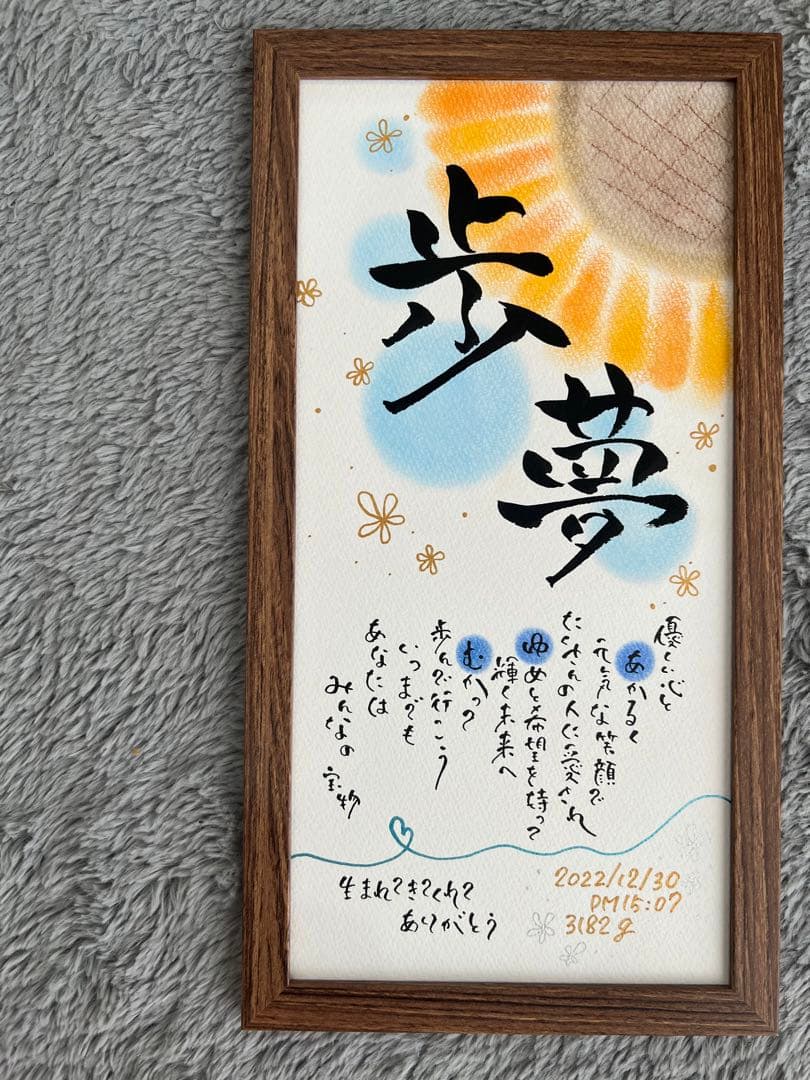 歩夢
優しい心と
あかるく
元気な笑顔で
たくさんの人に愛され
ゆめと希望を持って
輝く未来へ
むかって
歩んで行こう
いつまでも
あなたは
みんなの
宝物
生まれてきてくれて
ありがとう
2022/12/30
PM15:07
3182g